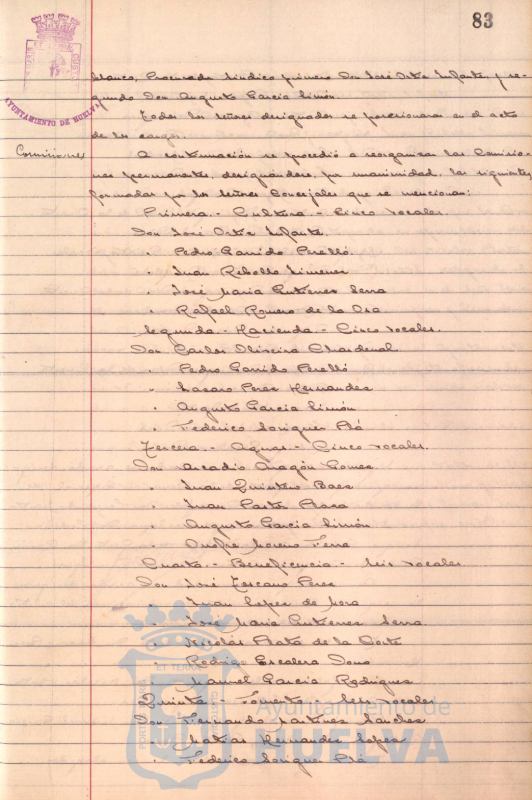 83
AYUNTAMIENTO DE HUELVA
blanco, Procurador Síndico primero Don José Ortiz Infante, y se-
gundo Don Augusto Garcia Simón.
Todos los señores designados se posesionaron en el acto
de los cargos.
Comisiones
A continuación se procedió a reorganizar las Comisio-
nes permanentes, designándose, por unanimidad, las siguientes
formadas por los señores Concejales que se mencionan:
Primera.- Cultura.- Cinco vocales.
Don José Ortiz Infante.
" Pedro Garrido Perelló
" Juan Rebollo Jimenez
" José Maria Gutierrez Serra
" Rafael Romero de la Osa
Segunda.- Hacienda.- Cinco vocales.
Don Carlos Oliveira Chardenal
" Pedro Garrido Perelló
" Lazaro Perez Hernandez
" Augusto Garcia Simón
" Federico
Tercera.- Aguas.- Cinco vocales.
Don Arcadio Aragón Gomez
" Juan Quintero Baez
" Juan
" Augusto Garcia Simón
" Onofre Moreno
Cuarta.- Beneficencia.- Seis vocales
Don José Toscano Perez
" Juan Lopez de Mora
" José Maria Gutierrez Serra.
" Nicolás de la Corte
Rodrigo Escalera
Manuel Garcia Rodriguez
Quinta.- Fomento.- vocales
Don Fernando Martinez Sanchez
" Matias Hernandez Lopez
" Federico
ET TERRAE
Ayuntamiento de
HUELVA